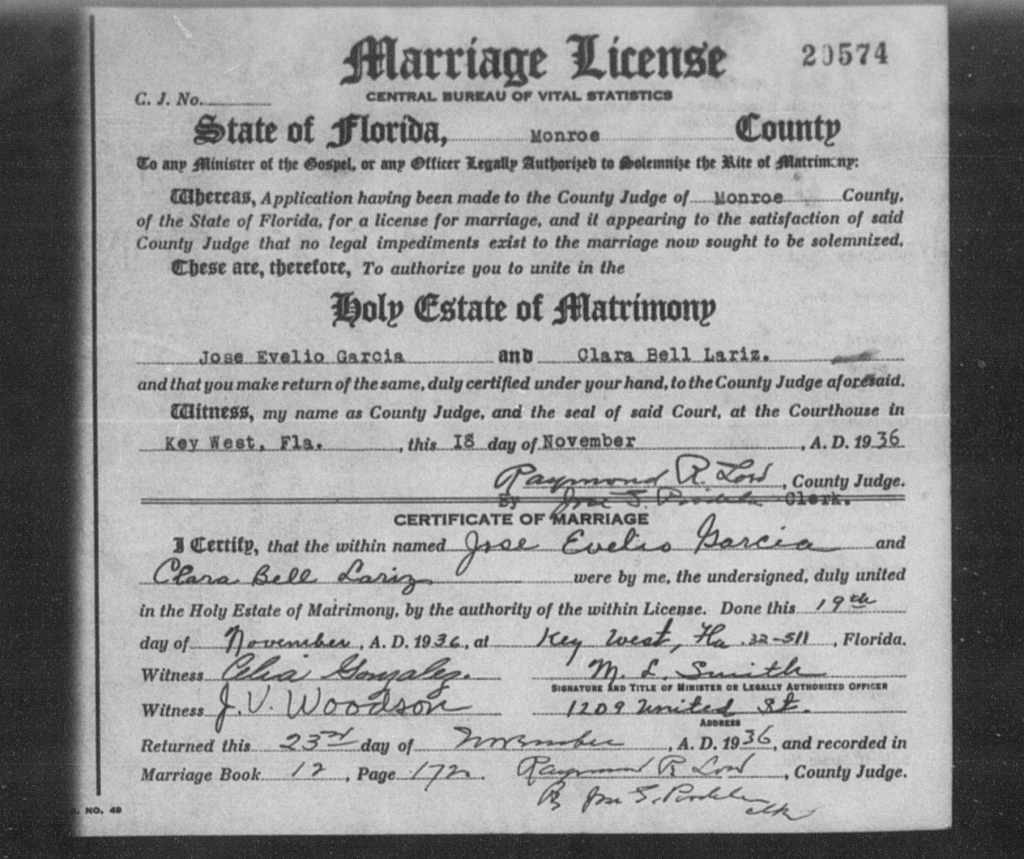 Marriage License 20574
C. J. No.
CENTRAL BUREAU OF VITAL STATISTICS
State of Florida, Monroe County
To any Minister of the Gospel, or any Officer Legally Authorized to Solemnize the Rite of Matrimony:
Whereas, Application having been made to the County Judge of Monroe County,
of the State of Florida, for a license for marriage, and it appearing to the satisfaction of said
County Judge that no legal impediments exist to the marriage now sought to be solemnized,
These are, therefore, To authorize you to unite in the
Holy Estate of Matrimony
Jose Evelio Garcia and Clara Bell Lariz.
and that you make return of the same, duly certified under your hand, to the County Judge aforesaid.
Witness, my name as County Judge, and the seal of said Court, at the Courthouse in
Key West, Fla., this 18 day of November, A. D. 1936
Raymond R. Lord, County Judge.
By Clerk.
CERTIFICATE OF MARRIAGE
I Certify, that the within named Jose Evelio Garcia and
Clara Bell Lariz were by me, the undersigned, duly united
in the Holy Estate of Matrimony, by the authority of the within License. Done this 19th
day of November, A. D. 1936, at Key West, Fla. 32-511, Florida.
Witness Celia Gonzalez. M. L. Smith
SIGNATURE AND TITLE OF MINISTER OR LEGALLY AUTHORIZED OFFICER
Witness J. V. Woodson 1209 United St.
ADDRESS
Returned this 23rd day of November, A. D. 1936, and recorded in
Marriage Book 12, Page 172. Raymond R Lord, County Judge.
clk
NO. 49